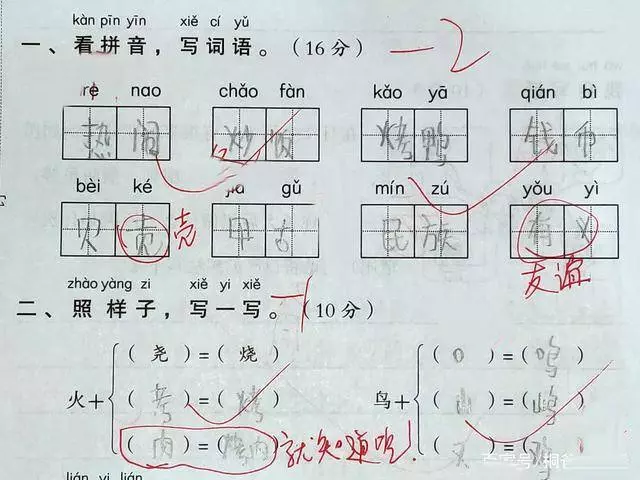 kàn pīn yīn xiě cí yǔ
一、看拼音，写词语。（16分） —2
rè nao chǎo fàn kǎo yā qián bì
热闹 炒饭 烤鸭 钱币
bèi ké jiǎ gǔ mín zú yǒu yì
贝壳 壳 甲古 民族 有义
友谊
zhào yàng zi xiě yi xiě
二、照样子，写一写。（10分） —1
（尧）＝（烧） （口）＝（鸣）
火＋ （考）＝（烤） 鸟＋ （山）＝（鸣）
（肉）＝（烤肉） 就知道吃！ （又）＝（鸡）
lián yi lián